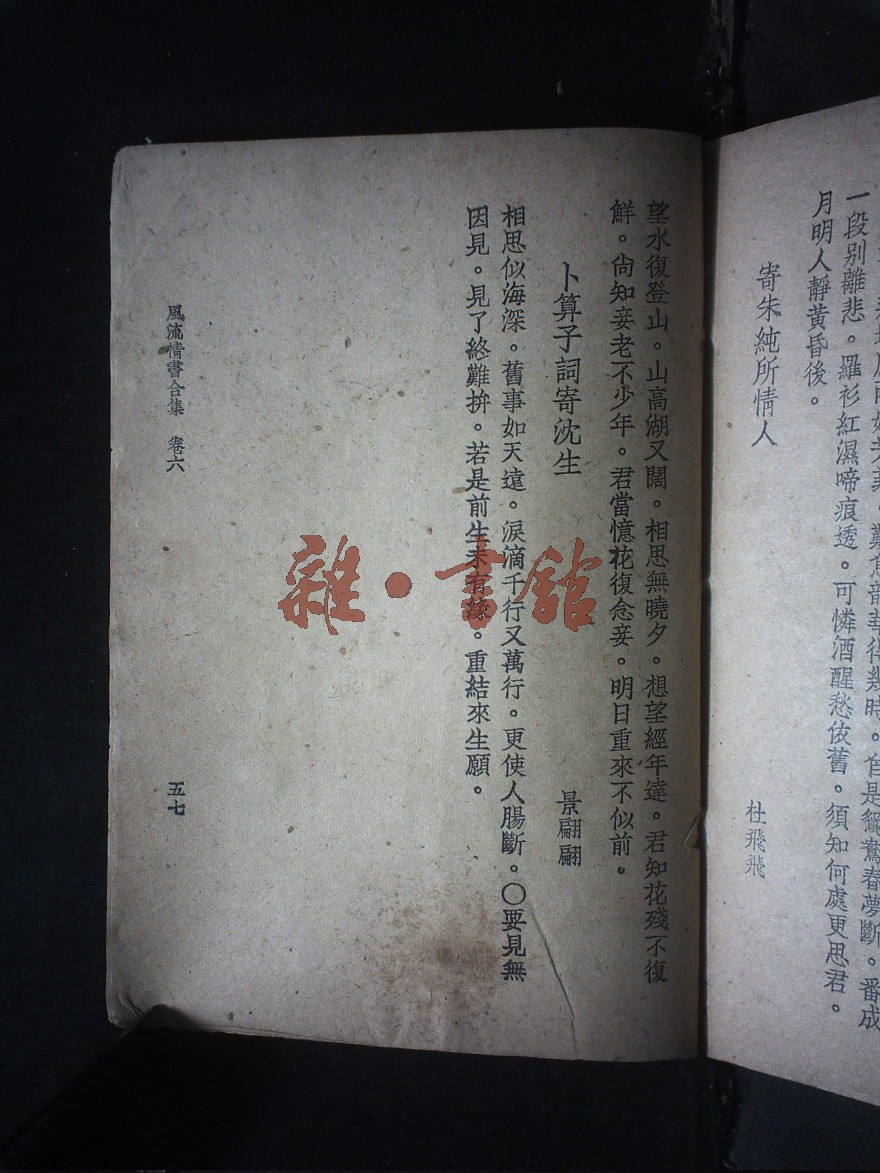 一段别離悲。羅衫紅濕啼痕透。可憐酒醒愁依舊。須知何處更思君。
月明人靜黃昏後。
寄朱純所情人
杜飛飛
望水復登山。山高湖又闊。相思無曉夕。想望經年達。君知花殘不復
鮮。尙知妾老不少年。君當憶花復念妾。明日重來不似前。
卜算子詞寄沈生
景翩翩
相思似海深。舊事如天遠。淚滴千行又萬行。更使人腸斷。〇要見無
因見。見了終難拚。若是前生未有緣。重結來生願。
風流情書合集 卷六
五七
雜·書館